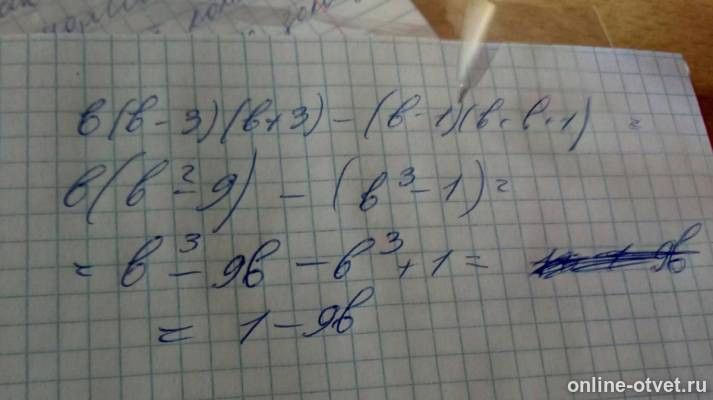 в(в-3)(в+3)-(в-1)(в+в+1) =
в(в²-9) - (в³-1) =
= в³-9в-в³+1= 9в
= 1-9в
online-otvet.ru